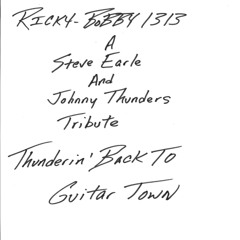 RICKY-BOBBY 1313
A
Steve Earle
And
Johnny Thunders
Tribute
Thunderin' BACK TO
GUITAR TOWN